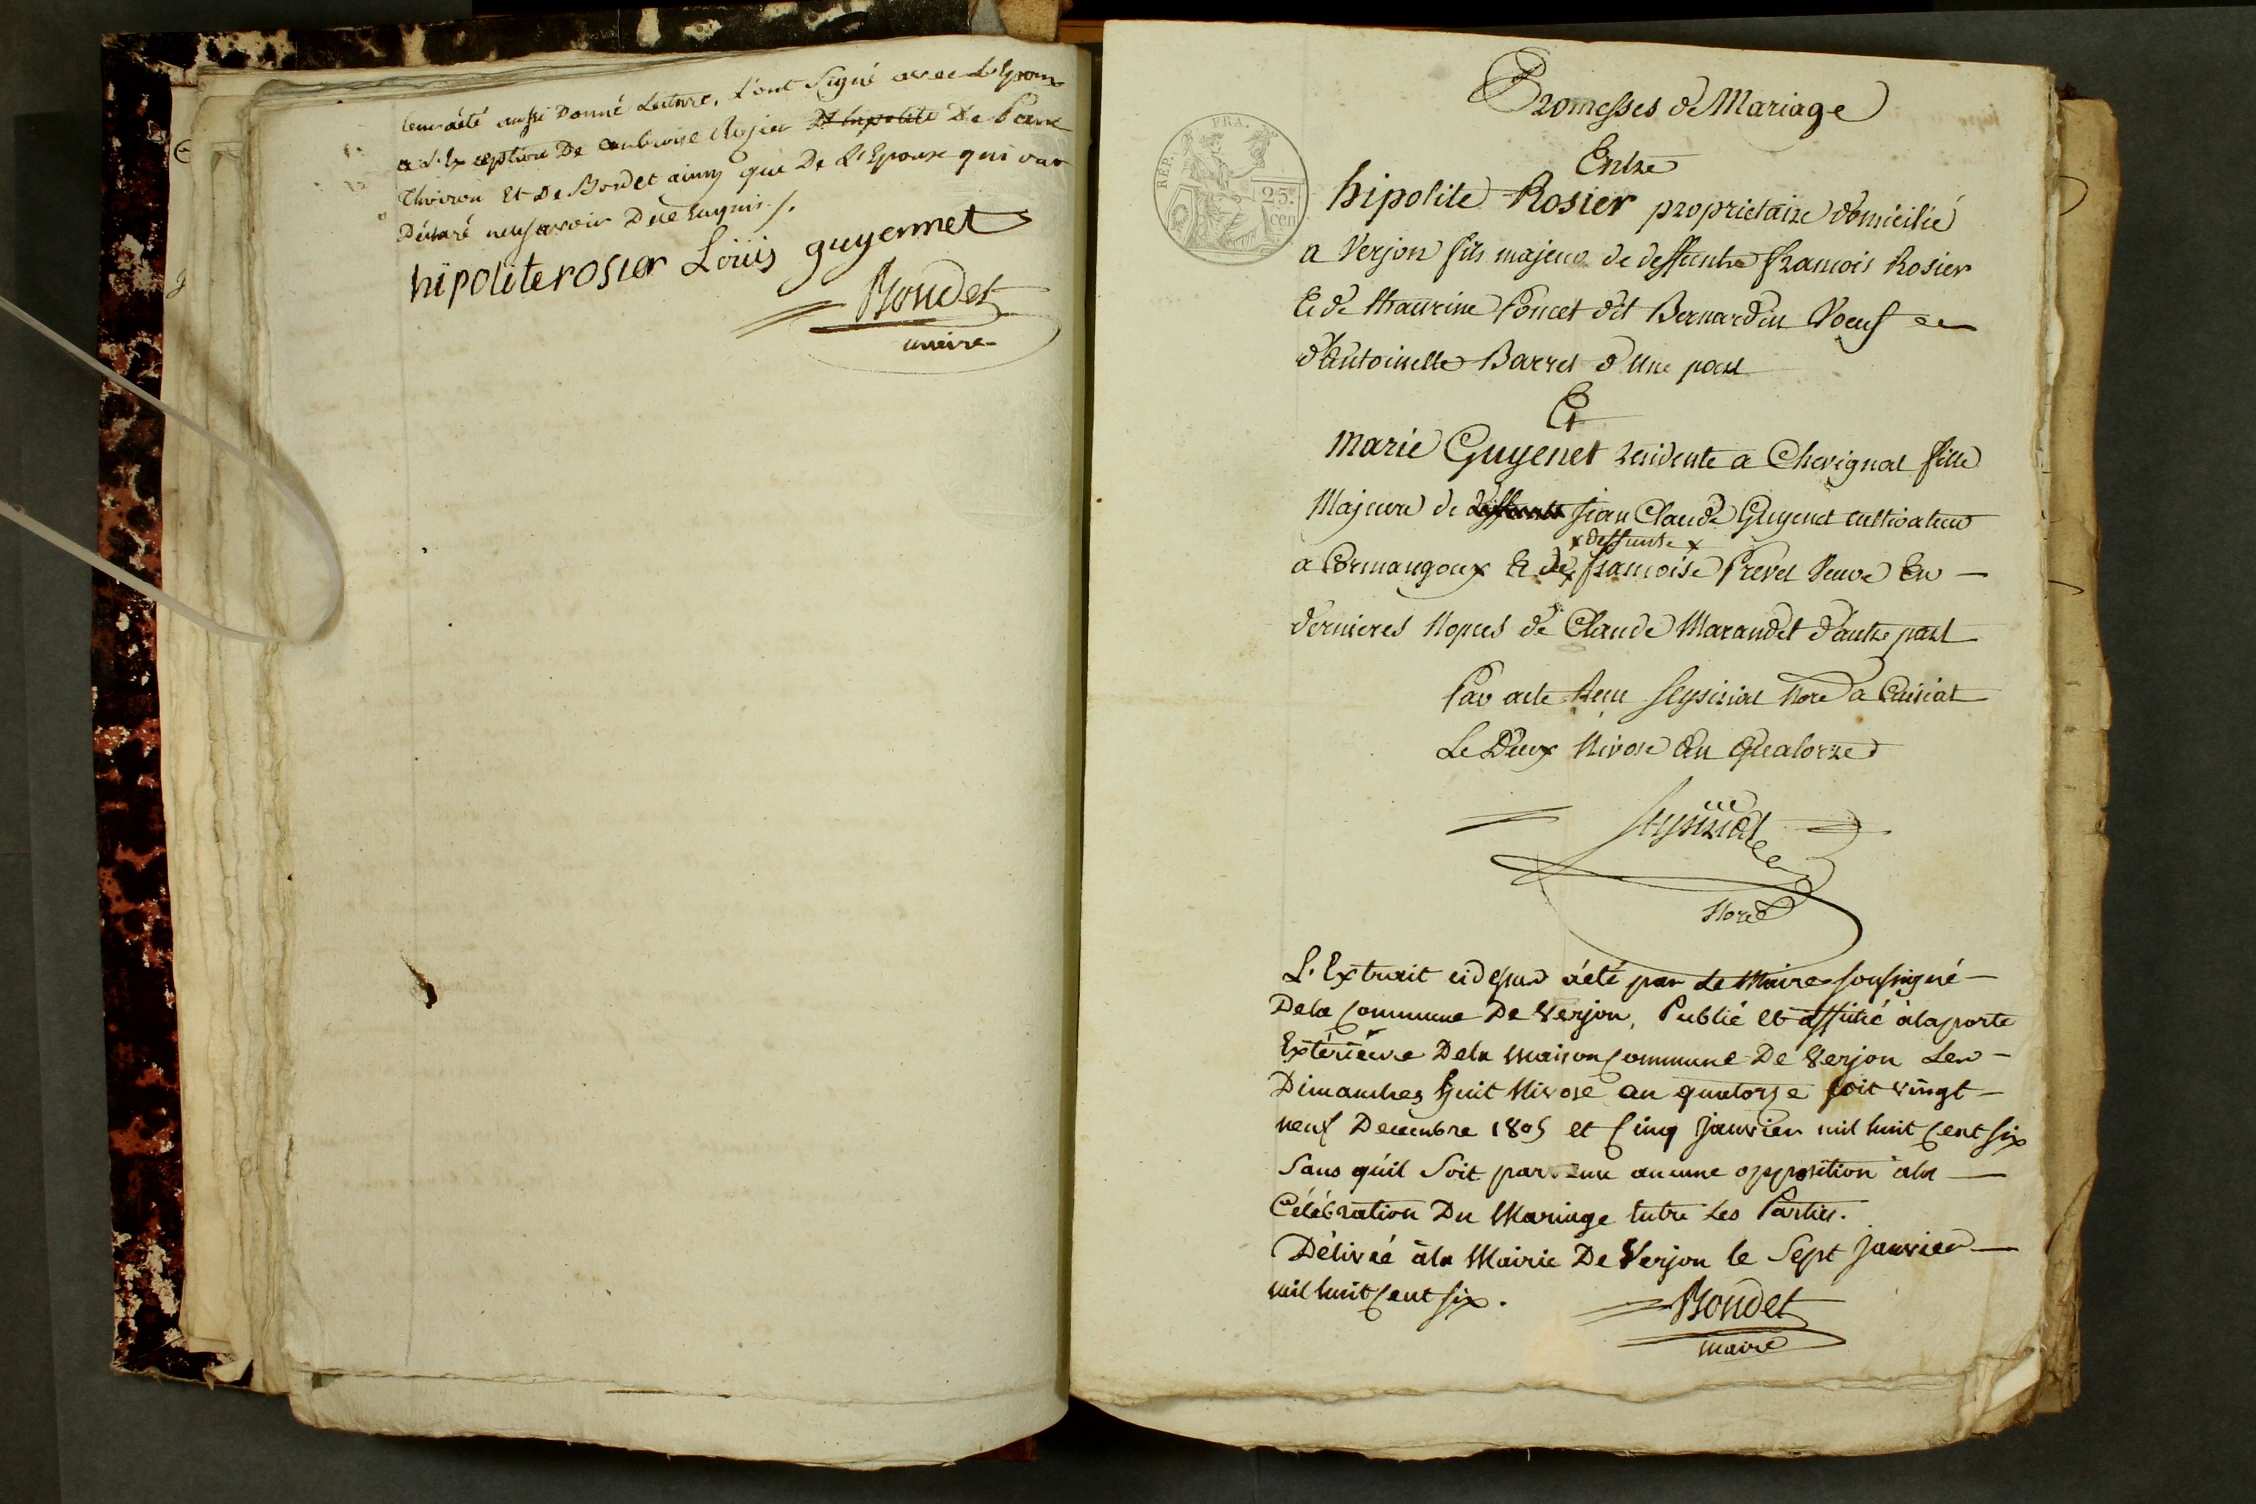 leur a été aussi Donné Lecture, l'ont Signé avec L'Epoux
a L'Exception De ambroise Rosier De Pierre
Thivion Et De Bondet ainsy que De L'Epouse qui ont
Déclaré ne sçavoir De ce Enquis ./.
hipolite rosier Loüis guyennet
Bondet
maire
REP. FRA.
25.
cen
Promesses de Mariage
Entre
hipolite Rosier proprietaire domicilié
a Verjon fils majeur de deffunts francois Rosier
Et de Maurine Poncet dit Bernardin Voeuf en
d'Antoinette Barret d'une part
Et
Marie Guyenet residente a Chevignat fille
Majeure de deffunt Jean Claude Guyenet cultivateur
x deffunte x
a Cormangoux Et de x francoise Prevet Veuve En —
dernieres Nopces de Claude Marandet d'autre part
Par acte Reçu Seysiriat Nore a Cuisiat
Le Deux Nivose An Quatorze
Seysiriat
Nore
L'Extrait cidessus a été par Le Maire soussigné —
De la Commune De Verjon, Publié et affiché à la porte
Extérieure De la Maison Commune De Verjon Les —
Dimanches huit Nivose an quatorze soit vingt —
neuf Decembre 1805 et Cinq Janvier mil huit Cent six
Sans qu'il Soit parvenu aucune opposition à la —
Célébration Du Mariage Entre Les Parties.
Délivré à la Mairie De Verjon le Sept Janvier —
mil huit Cent six.
Bondet
maire